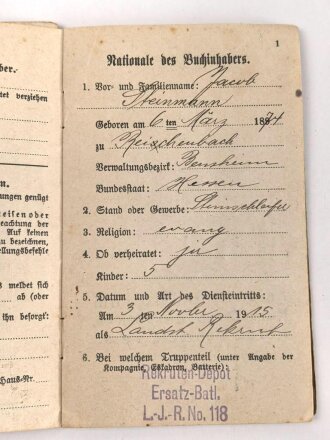 ber.
tet verziehen
n.
ungen genügt
eisen oder
eachtung der
Auf keinen
zu bezeichnen,
tellungsbefehle
meldet sich
ab (oder
ihn besorgt:
Haus-Nr.
1
Nationale des Buchinhabers.
1. Vor- und Familienname: Jacob
Steinmann
Geboren am 6 ten März 1874
zu Reichenbach
Verwaltungsbezirk: Bensheim
Bundesstaat: Hessen
2. Stand oder Gewerbe: Steinschleifer
3. Religion: evang
4. Ob verheiratet: ja
Kinder: 5
5. Datum und Art des Diensteintritts:
Am 3 ten Novber 1915
als Landst. Rekrut
6. Bei welchem Truppenteil (unter Angabe der
Kompagnie, Eskadron, Batterie):
Rekruten-Depot
Ersatz-Batl.
L.-J.-R. No. 118